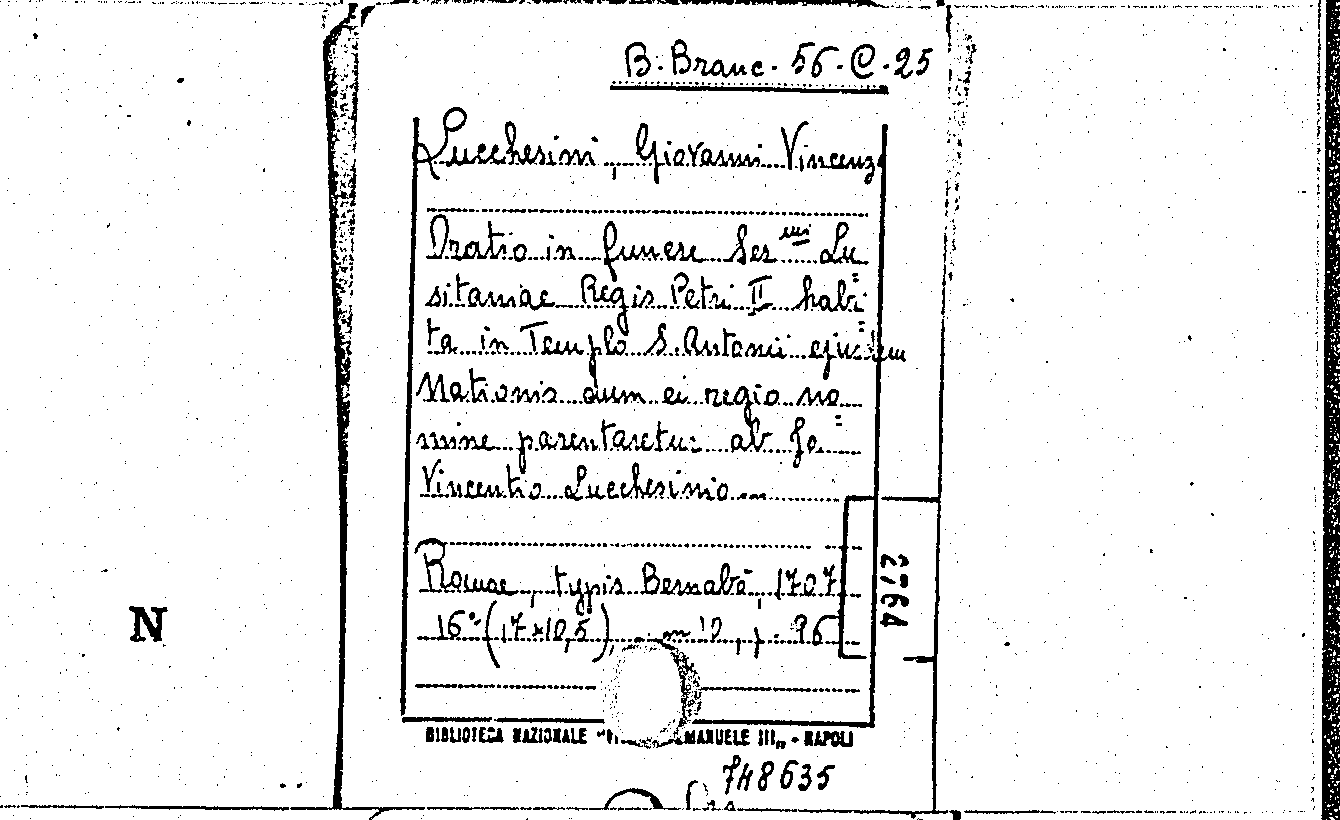 B. Branc. 56-C-25
Lucchesini, Giovanni Vincenzo
Oratio in funere Ser.mi Lu=
sitaniae Regis Petri II habi=
ta in Templo S. Antonii ejusdem
Nationis dum ei regio no=
mine parentaretur ab Jo:
Vincentio Lucchesinio...
Romae, typis Bernabò, 1707
16° (17x10,5), 96
2764
N
BIBLIOTECA NAZIONALE EMANUELE III„ - NAPOLI
748635